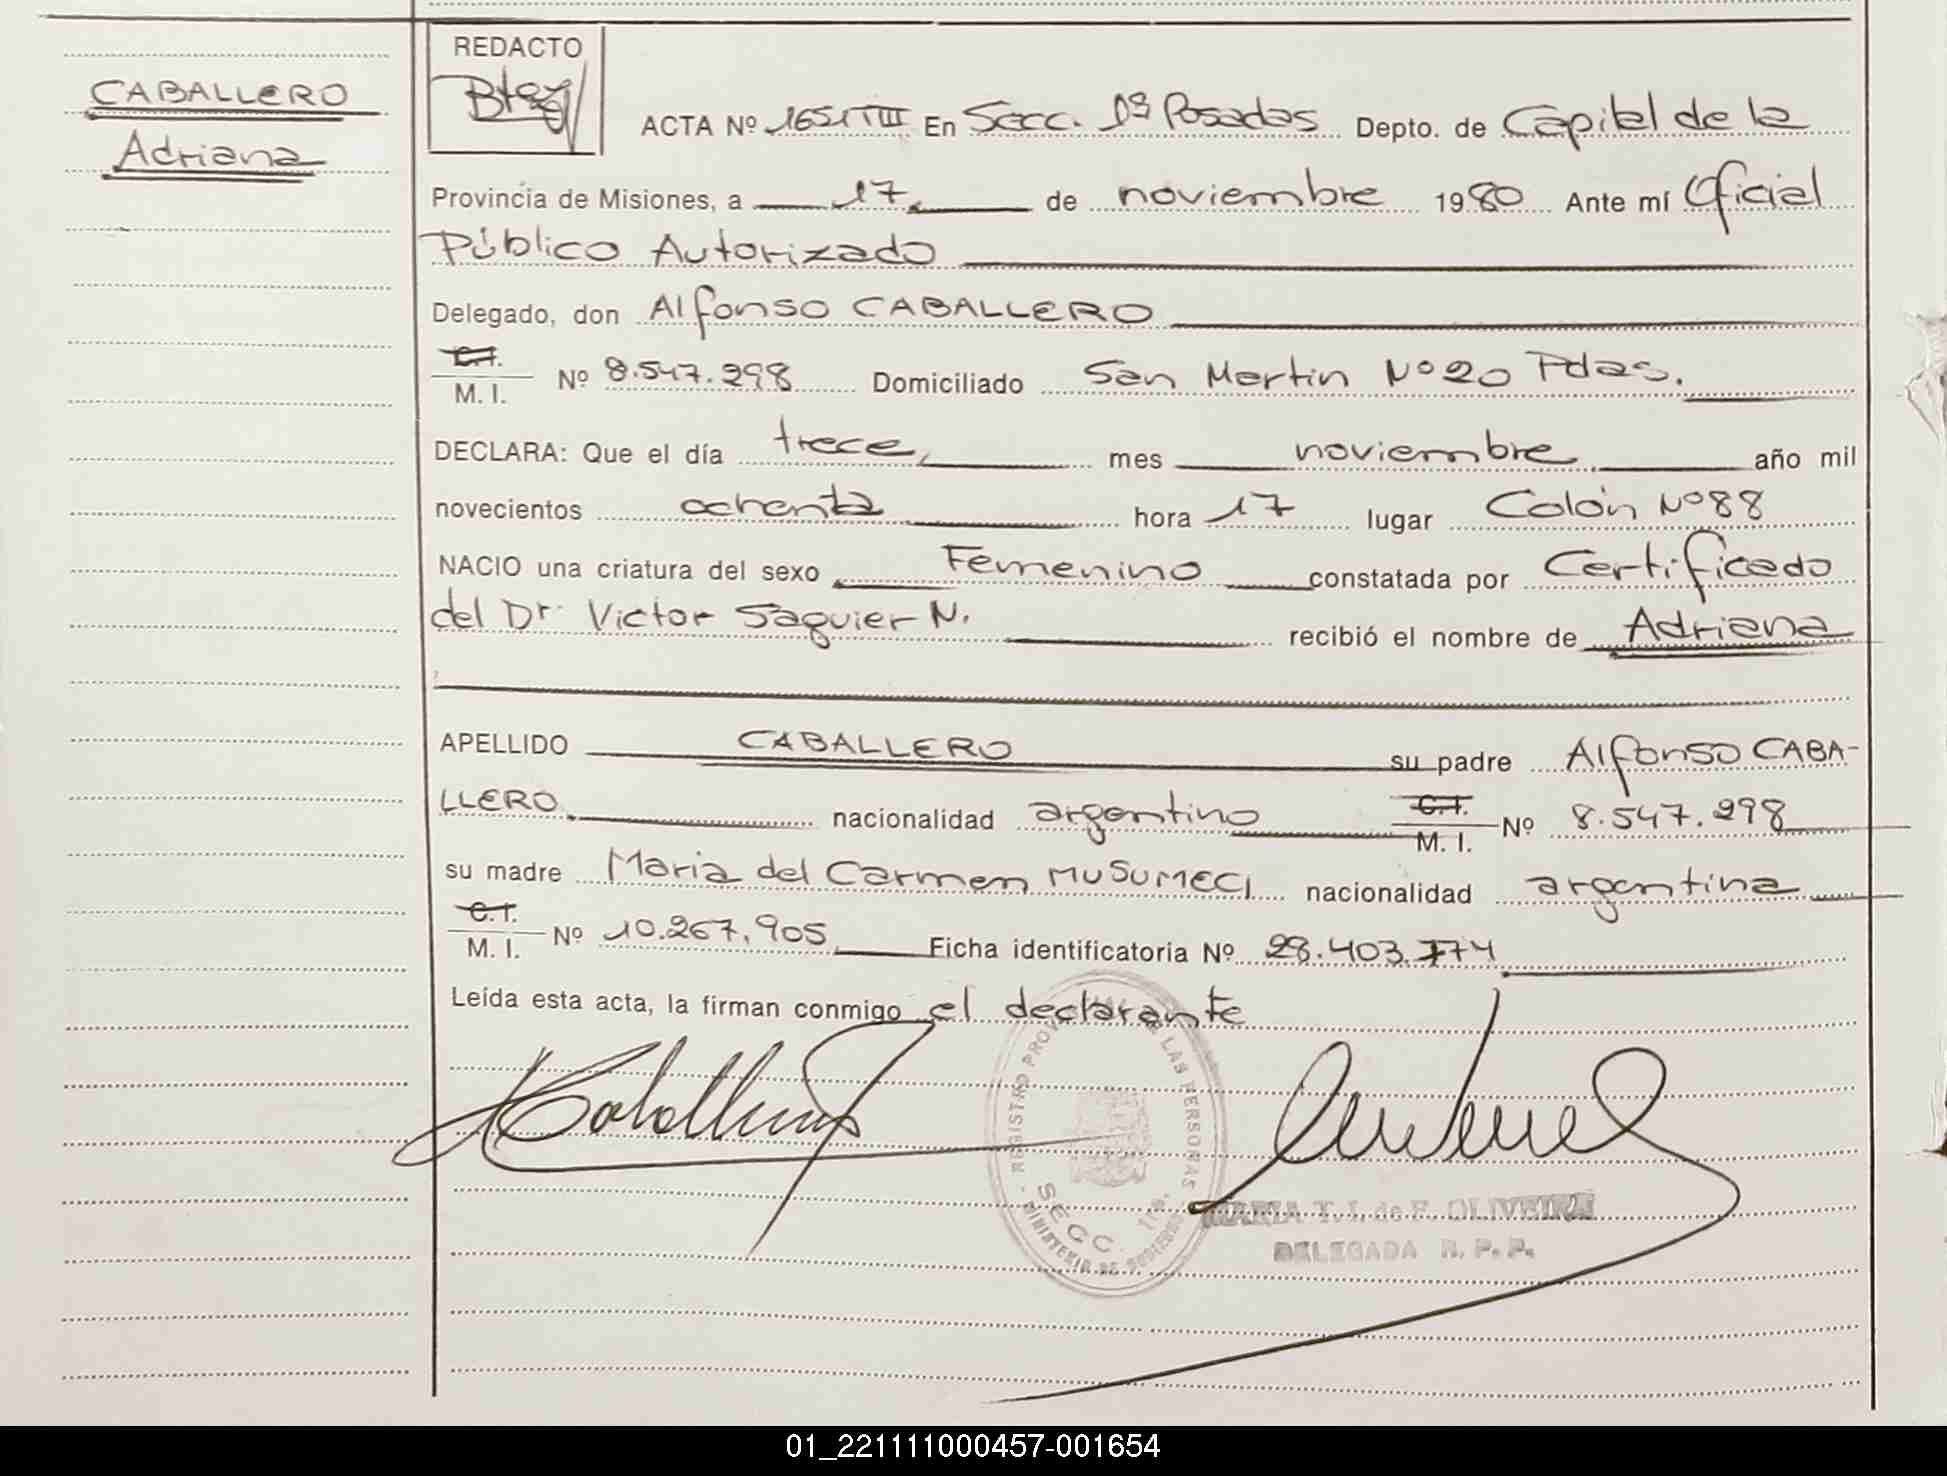 CABALLERO
Adriana
REDACTO
ACTA Nº 1651 TIII En Secc. 1ª Posadas Depto. de Capital de la
Provincia de Misiones, a 17 de noviembre 1980 Ante mí Oficial
Público Autorizado
Delegado, don Alfonso CABALLERO
C.I.
M. I. Nº 8.547.298 Domiciliado San Martin Nº 20 Pdas.
DECLARA: Que el día trece, mes noviembre año mil
novecientos ochenta hora 17 lugar Colón Nº 88
NACIO una criatura del sexo Femenino constatada por Certificado
del Dr. Victor Saguier N. recibió el nombre de Adriana
APELLIDO CABALLERO su padre Alfonso CABA-
LLERO nacionalidad argentino C.I. M. I. Nº 8.547.298
su madre Maria del Carmen MUSUMECI nacionalidad argentina
C.I.
M. I. Nº 10.267.905 Ficha identificatoria Nº 28.403.774
Leída esta acta, la firman conmigo el declarante
REGISTRO PROVINCIAL DE LAS PERSONAS
MINISTERIO DE
SECC. 1ra.
MARIA T. I. de F. OLIVEIRA
DELEGADA R. P. P.
01_221111000457-001654